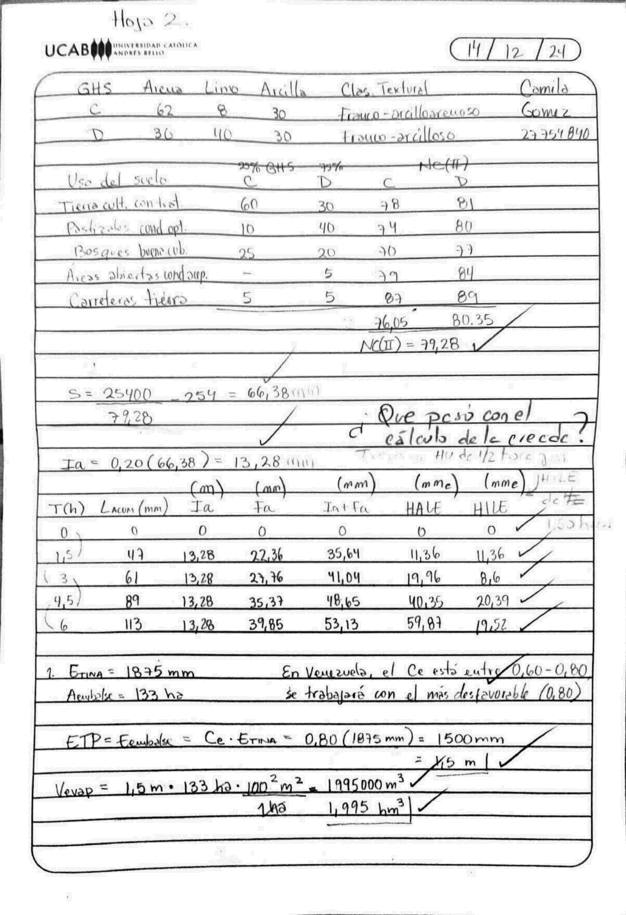 Hoja 2.
UCAB UNIVERSIDAD CATÓLICA ANDRÉS BELLO
14 / 12 / 24
GHS Arena Limo Arcilla Clas. Textural Camila
C 62 8 30 Franco-arcilloarenoso Gomez
D 30 40 30 Franco-arcilloso 27.754840
25% GHS 75% Nc(II)
Uso del suelo C D C D
Tierra cult. con trat. 60 30 78 81
Pastizales cond opt. 10 40 74 80
Bosques buena cub. 25 20 70 77
Areas abiertas cond sup. - 5 79 84
Carreteras tierra 5 5 87 89
76,05 80.35
Nc(II) = 79,28
S = 25400 - 254 = 66,38 mm
79,28
¿ Que pasó con el
cálculo de la crecida ?
Ia = 0,20 (66,38) = 13,28 mm
HU de 1/2 hora
(mm) (mm) (mm) (mme) (mme) HILE
T(h) LACUM (mm) Ia Fa Ia+Fa HALE HILE de
0 0 0 0 0 0 0 1,50 horas
1,5 47 13,28 22,36 35,64 11,36 11,36
3 61 13,28 27,76 41,04 19,96 8,6
4,5 89 13,28 35,37 48,65 40,35 20,39
6 113 13,28 39,85 53,13 59,87 19,52
1. ETINA = 1875 mm En Venezuela, el Ce está entre 0,60-0,80
Aembalse = 133 ha se trabajará con el más desfavorable (0,80)
ETP = Eembalse = Ce · ETINA = 0,80 (1875 mm) = 1500 mm
= 1,5 m
Vevap = 1,5 m · 133 ha · 100² m² = 1995000 m³
1 ha 1,995 hm³